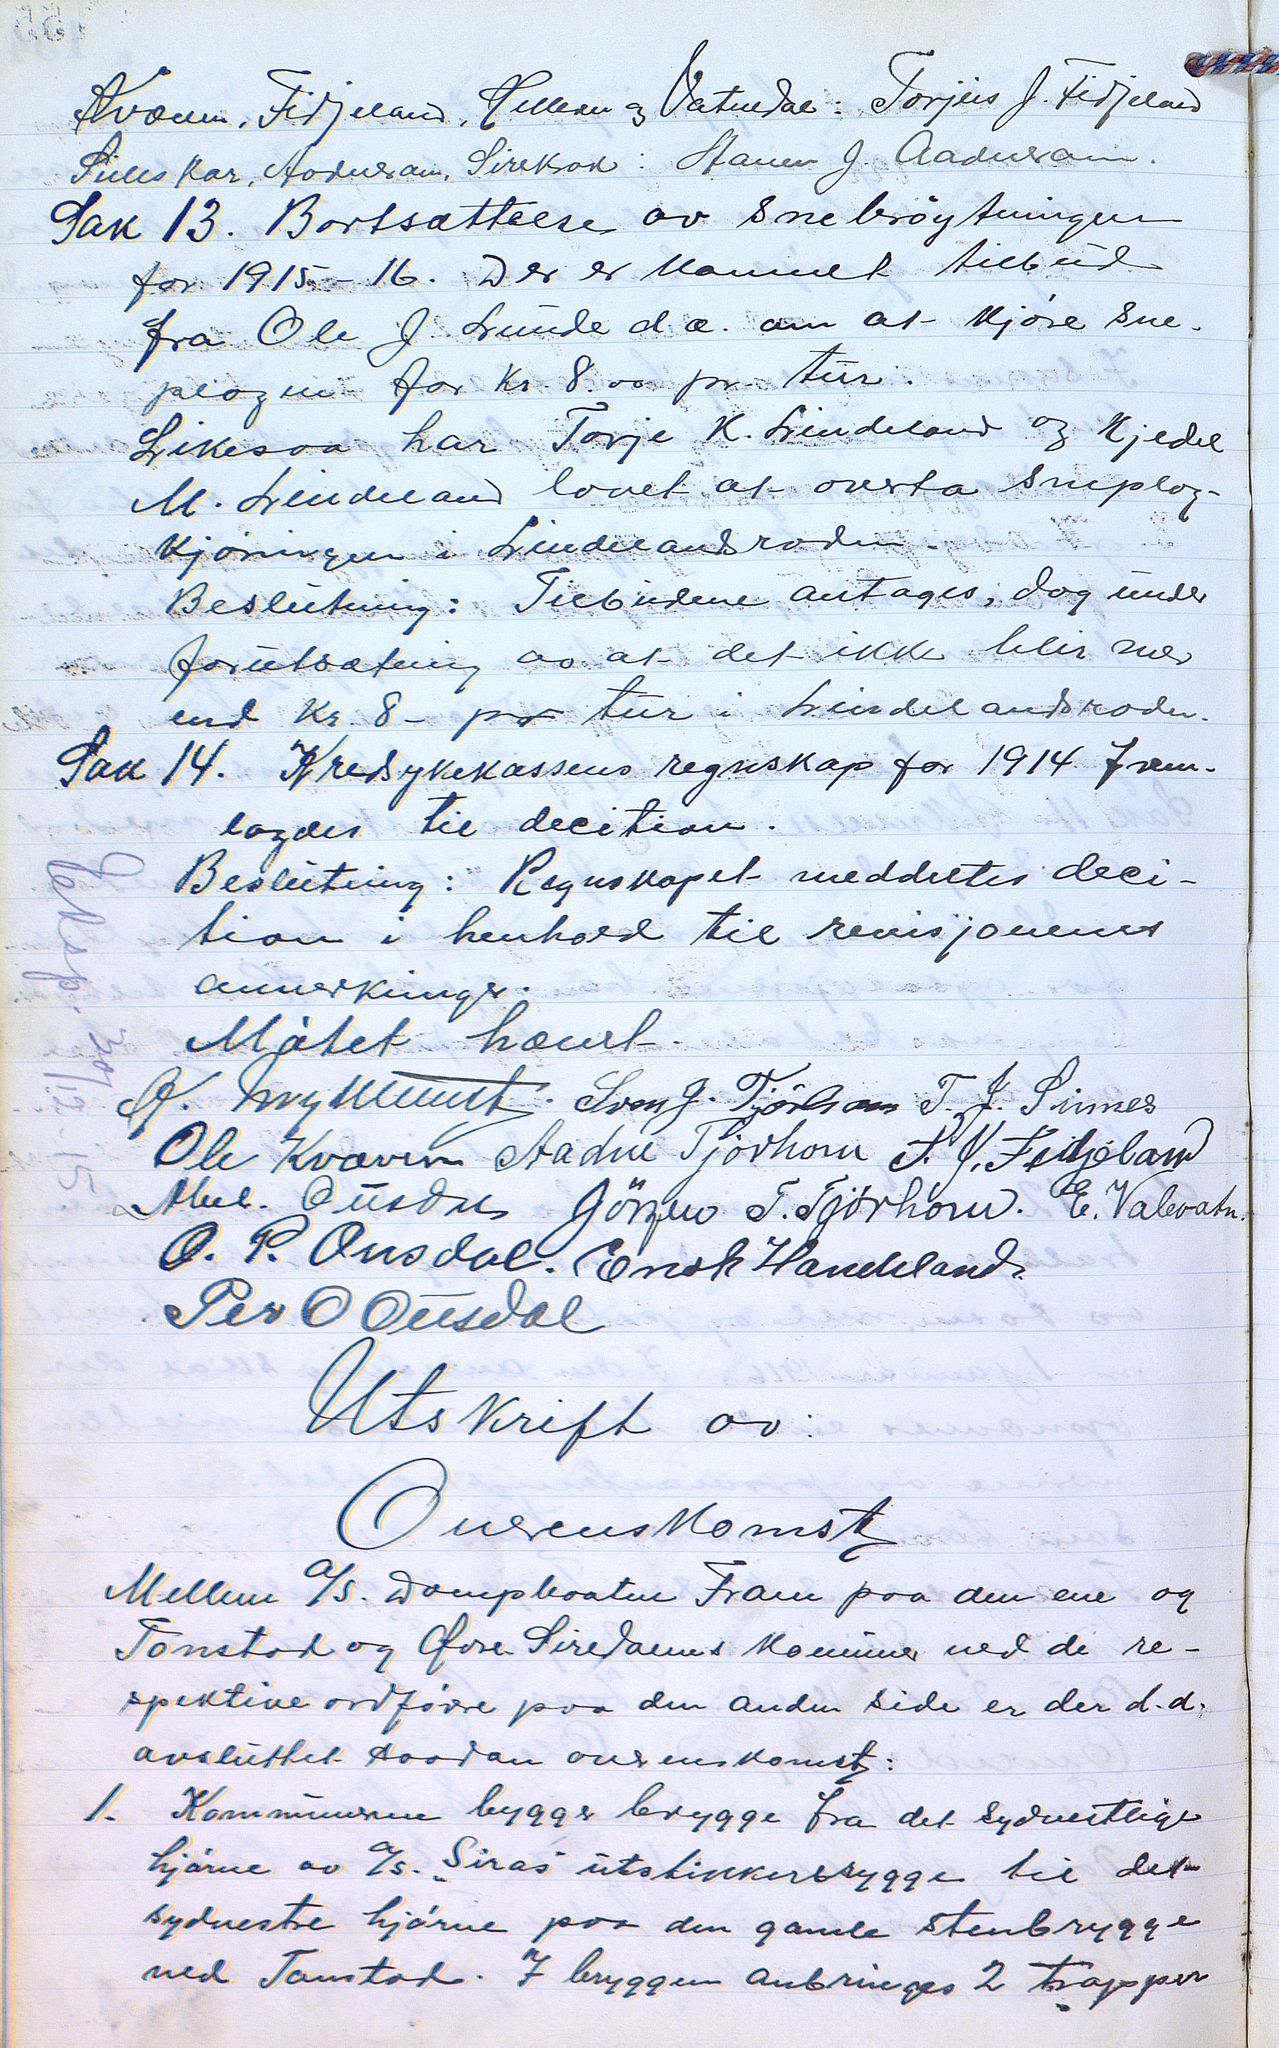 Kvæven, Fidjeland, Hilleknu og Vatnedal: Torjus J. Fidjeland
Suleskar, Aadneram, Sireksok: Hauen J. Aadneram.
Sak 13. Bortsættelse av snebröytningen
for 1915-16. Der er kommet tilbud
fra Ole J. Lunde d. æ. om at kjöre sne-
plogen for kr. 8.00 pr. tur.
Likesaa har Torje K. Lindeland og Kjedel
M. Lindeland lovet at overta sneplog-
kjöringen i Lindelandsroden.
Beslutning: Tilbudene antages, dog under
forutsætning av at det ikke blir mer
end kr. 8- pr tur i Lindelandsroden.
Sak 14. Kredsykekassens regnskap for 1914 frem-
lagdes til decition.
Beslutning: Regnskapet meddeltes deci-
tion i henhold til revisjonens
anmerkninger.
Mötet hævet.
Eksp. 30/12-15
K. Nykmundt. Sven J. Tjörhom T. J. Sinnes
Ole Kvæven Aadne Tjörhom T. J. Fidjeland
Mel. Ousdal Jörgen T. Tjörhom. E. Valevatn.
O. P. Ousdal. Enok Handeland
Per O Ousdal
Utskrift av:
Overenskomst
Mellem a/s. Dampbaaten Fram paa den ene og
Tonstad og Øvre Siredalens kommuner ved de re-
spektive ordförere paa den anden side er der d.d.
avsluttet saadan overenskomst:
1. Kommunerne bygger brygge fra det sydvestlige
hjörne av a/s. "Siras" utstikkerbrygge til det
sydvestre hjörne paa den gamle stenbrygge
ved Tonstad. I bryggen anbringes 2 trapper